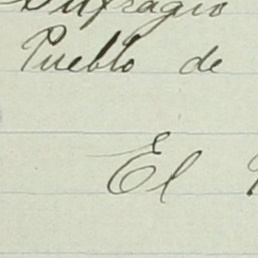 Sufragio
Pueblo de
El